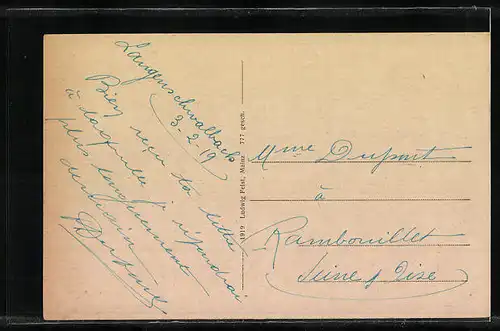 Langenschwalbach
3-2-19
Bien reçu ta lettre
à laquelle je répondrai
plus longuement
demain
Dupont
1919 Ludwig Feist, Mainz 777 gesch.
Mme Dupont
à
Rambouillet
Seine & Oise